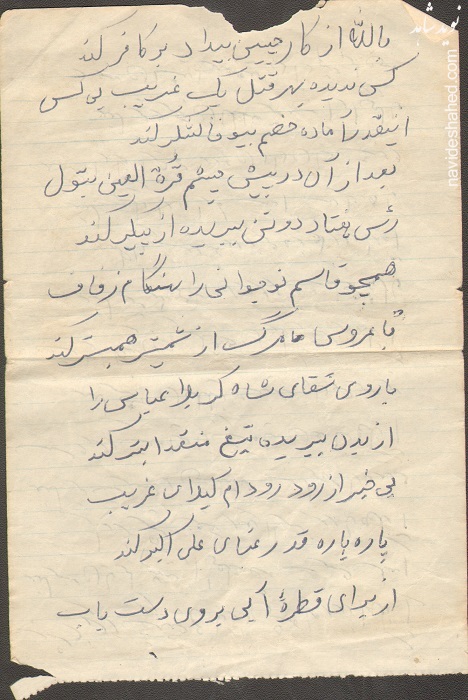 باللّه از کار چنین بیداد بر کافر کند
کس ندیده بهر قتل یک غریب بی کس
اینقدر آماده خصم بیوفا لشکر کند
بعد از آن در پیش چشم قُرة العین بتول
رئس هفتاد دو تن ببریده از پیکر کند
همچو قاسم نوجوانی را بهنگام زفاف
با عروس مرگ از شمشیر همبستر کند
بازوی سقای شاه کربلا عباس را
از بدن ببریده تیغ ابتر کند
بی خبر از رود رود ام لیلای غریب
پاره پاره قد رعنای علی اکبر کند
از برای قطرهٔ آبی بروی دست باب
نوید شاهد
navideshahed.com